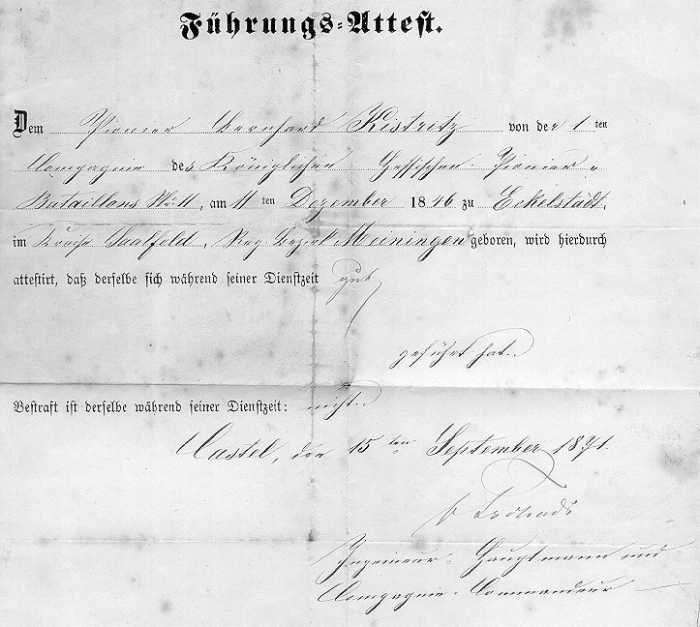 Führungs-Attest.
Dem Pionier Bernhard Kistritz von der 1 ten
Compagnie des Königlichen Hessischen Pionier-
Bataillons No 11, am 11 ten Dezember 1846 zu Eckelstädt,
im Kreise Saalfeld, Reg. Bezirk Meiningen geboren, wird hierdurch
attestirt, daß derselbe sich während seiner Dienstzeit gut
geführt hat.
Bestraft ist derselbe während seiner Dienstzeit: nicht.
Castel, den 15 ten September 1871.
Ingenieur-Hauptmann und
Compagnie-Commandeur